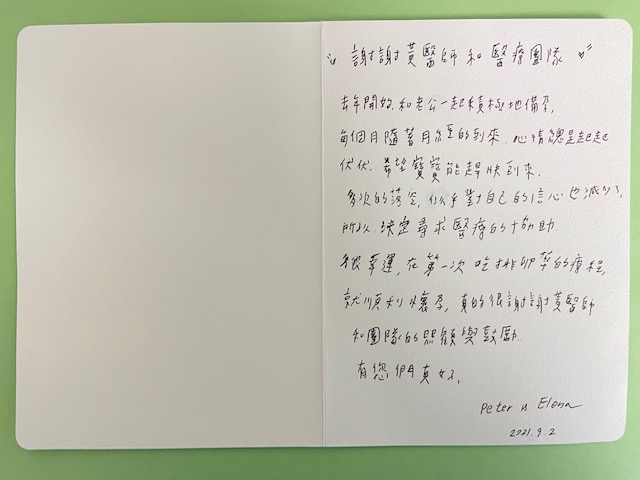 謝謝黃醫師和醫療團隊
去年開始,和老公一起積極地備孕,
每個月隨著月經的到來,心情總是起起
伏伏,希望寶寶能趕快到來,
多次的落空,似乎對自己的信心也減少了,
所以決定尋求醫療的協助.
很幸運,在第一次吃排卵藥的療程,
就順利懷孕,真的很謝謝黃醫師
和團隊的照顧與鼓勵
有您們真好。
Peter & Elena
2021.9.2